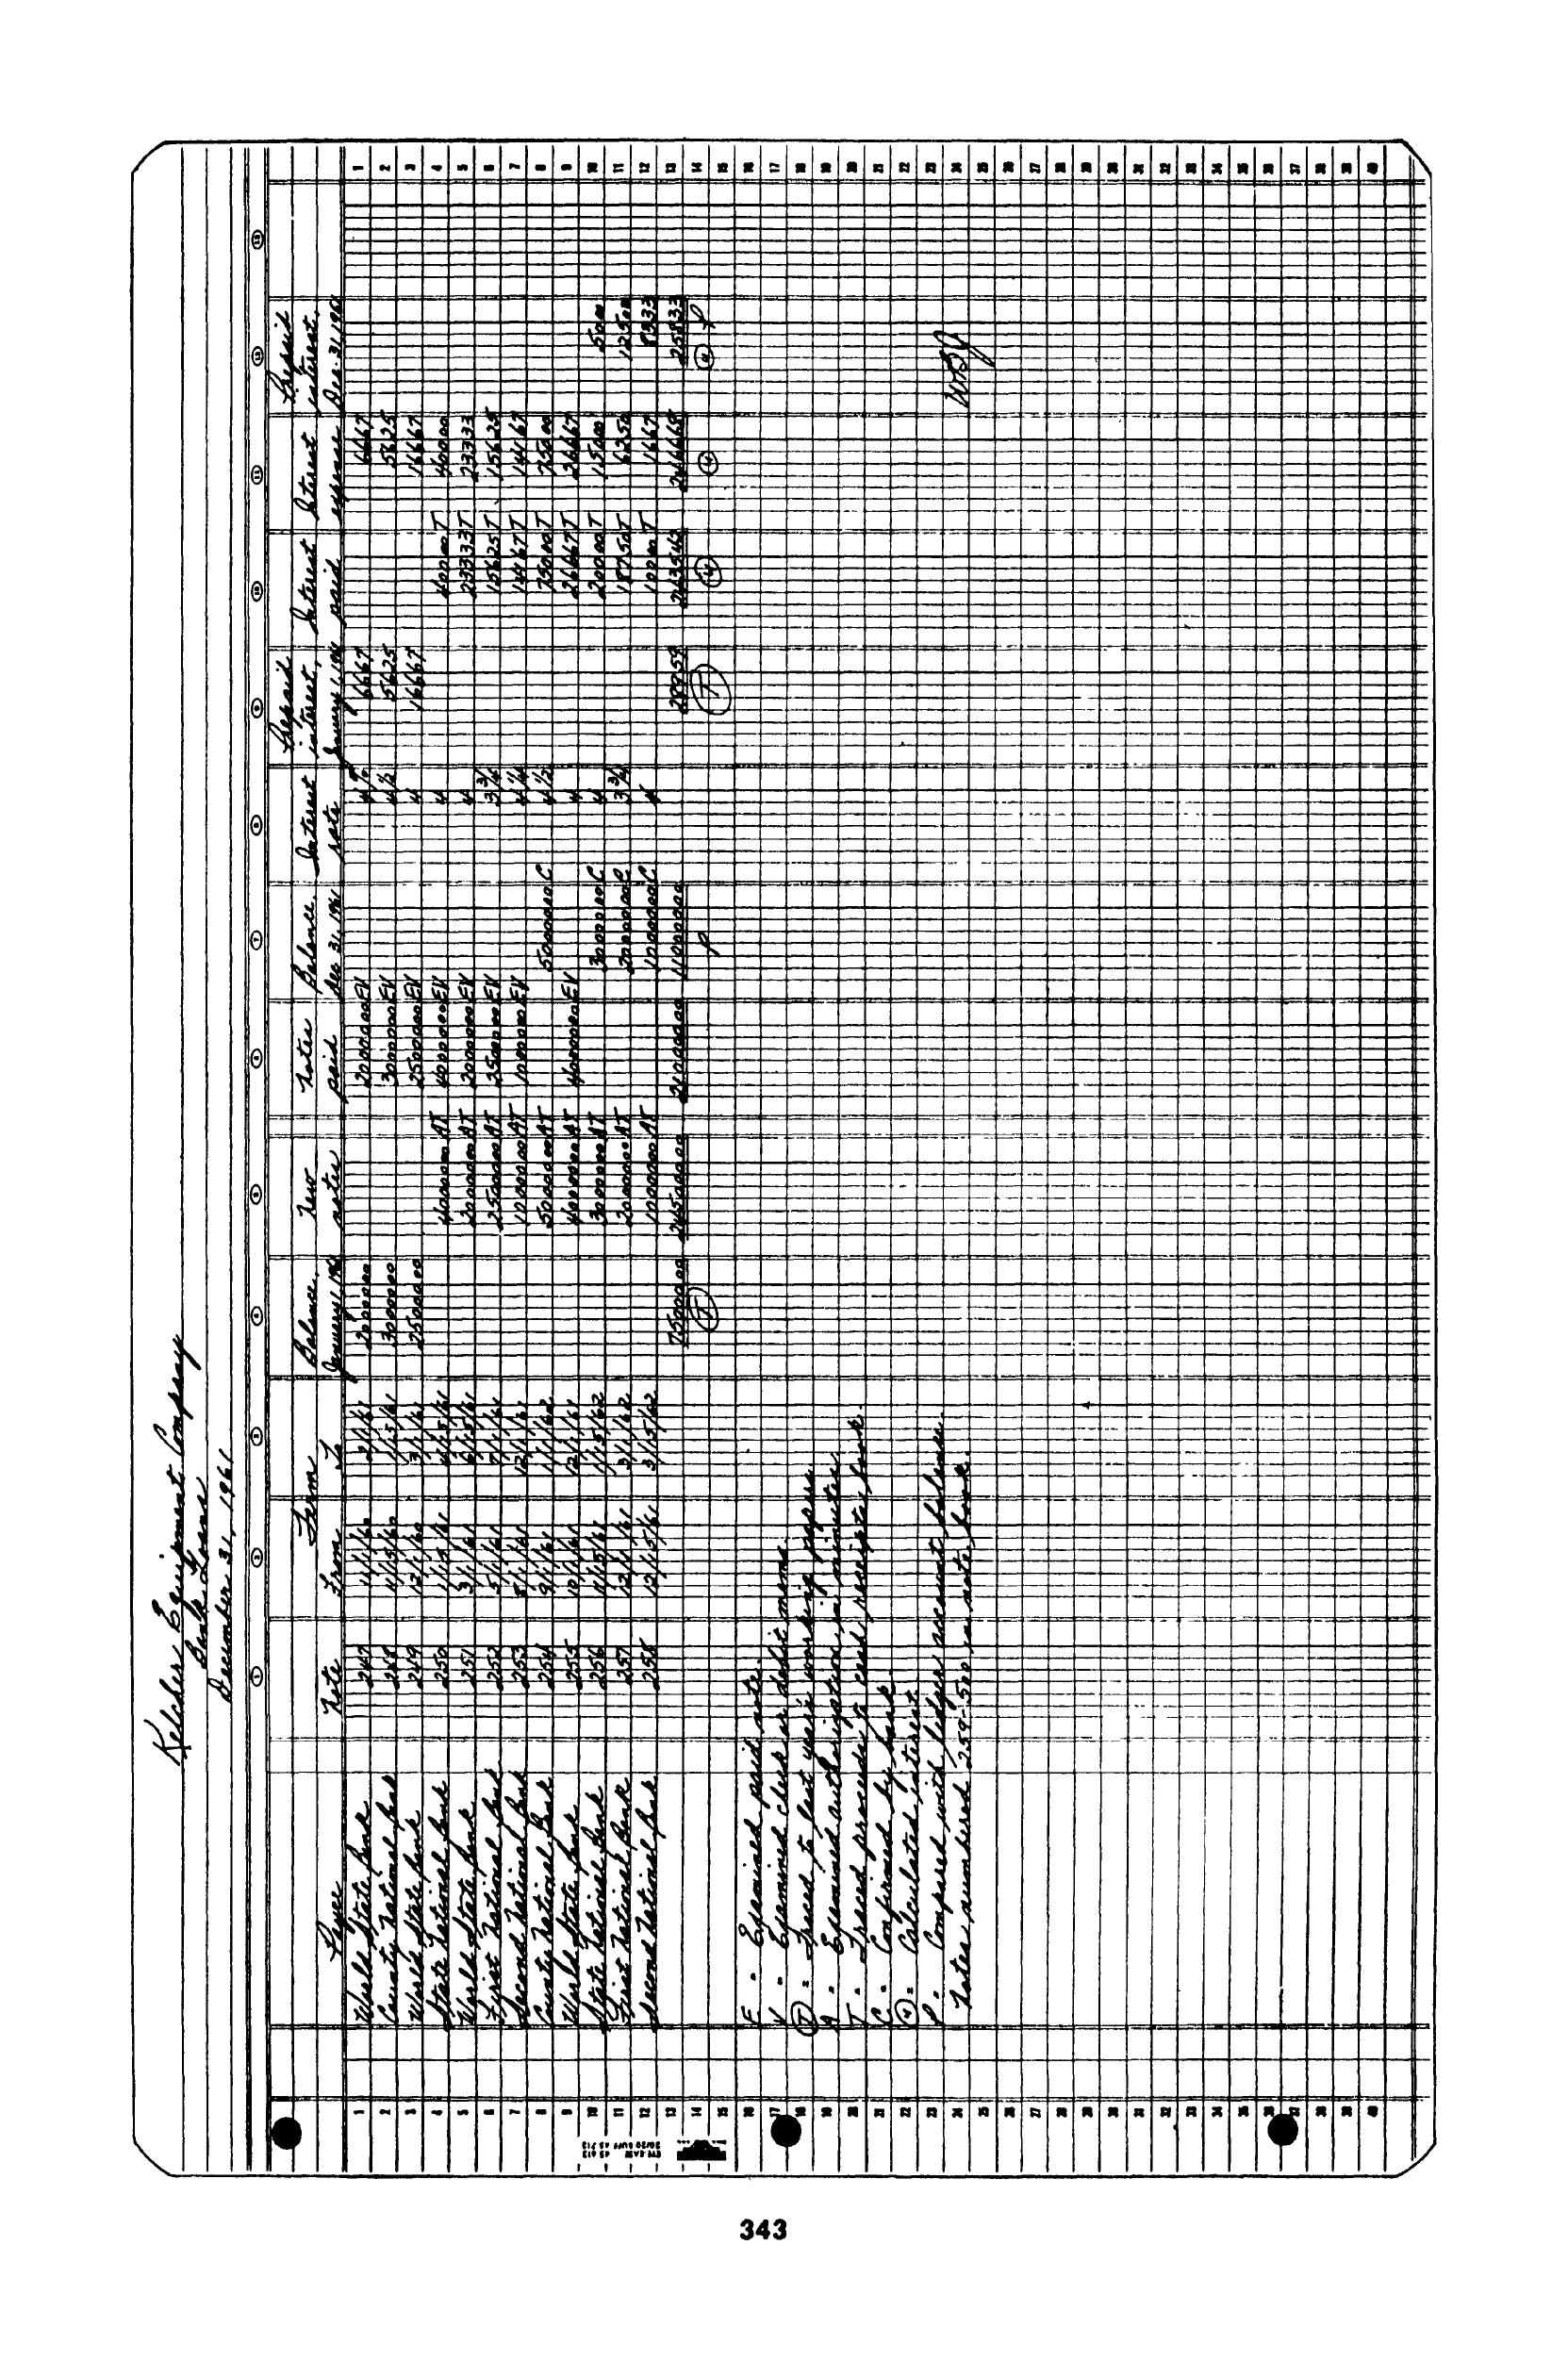 Kelcher Equipment Company
Bank Loans
December 31, 1961
Term
Payee Note From To Balance, January 1, 1961 New notes Notes paid Balance, Dec 31, 1961 Interest rate Prepaid interest, January 1, 1961 Interest paid Interest expense Prepaid interest, Dec. 31, 1961
1 World State Bank 247 11/1/60 2/1/61 20000 00 20000 00 EV 4% 66 67 66 67
2 County National Bank 248 11/15/60 1/15/61 30000 00 30000 00 EV 4 1/2 56 25 56 25
3 World State Bank 249 12/1/60 3/1/61 25000 00 25000 00 EV 4 166 67 166 67
4 State National Bank 250 1/15/61 4/15/61 40000 00 AT 40000 00 EV 4 400 00 T 400 00
5 World State Bank 251 3/1/61 6/15/61 20000 00 AT 20000 00 EV 4 233 33 T 233 33
6 First National Bank 252 5/1/61 7/1/61 25000 00 AT 25000 00 EV 3 3/4 156 25 T 156 25
7 Second National Bank 253 8/1/61 12/1/61 10000 00 AT 10000 00 EV 4 1/4 141 67 T 141 67
8 County National Bank 254 9/1/61 1/1/62 50000 00 AT 50000 00 C 4 1/2 750 00 T 750 00
9 World State Bank 255 10/1/61 12/1/61 40000 00 AT 40000 00 EV 4 266 67 T 266 67
10 State National Bank 256 11/15/61 1/15/62 30000 00 AT 30000 00 C 4 200 00 T 150 00 50 00
11 First National Bank 257 12/1/61 3/1/62 20000 00 AT 20000 00 C 3 3/4 187 50 T 62 50 125 00
12 Second National Bank 258 12/15/61 3/15/62 10000 00 AT 10000 00 C 4 100 00 T 16 67 83 33
13 75000 00 245000 00 210000 00 110000 00 289 59 2435 42 2466 68 258 33
E - Examined paid note.
V - Examined check or debit memo.
T = Traced to last year's working papers.
A - Examined authorization in minutes.
T - Traced proceeds to cash receipts book.
C - Confirmed by bank.
Calculated interest.
P - Compared with ledger account balance.
Notes numbered 259-500 in note book.
343